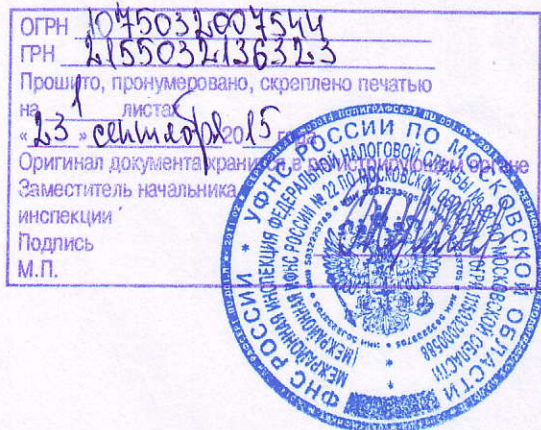 ОГРН 1075032007544
ГРН 2155032136323
Прошито, пронумеровано, скреплено печатью
на 1 листах
«23» сентября 2015 года
Оригинал документа хранится в регистрирующем органе
Заместитель начальника
инспекции
Подпись
М.П.
УФНС РОССИИ ПО МОСКОВСКОЙ ОБЛАСТИ
ФНС РОССИИ
МЕЖРАЙОННАЯ ИНСПЕКЦИЯ ФЕДЕРАЛЬНОЙ НАЛОГОВОЙ СЛУЖБЫ № 22 ПО МОСКОВСКОЙ ОБЛАСТИ
(МЕЖРАЙОННАЯ ИФНС РОССИИ № 22 ПО МОСКОВСКОЙ ОБЛАСТИ)